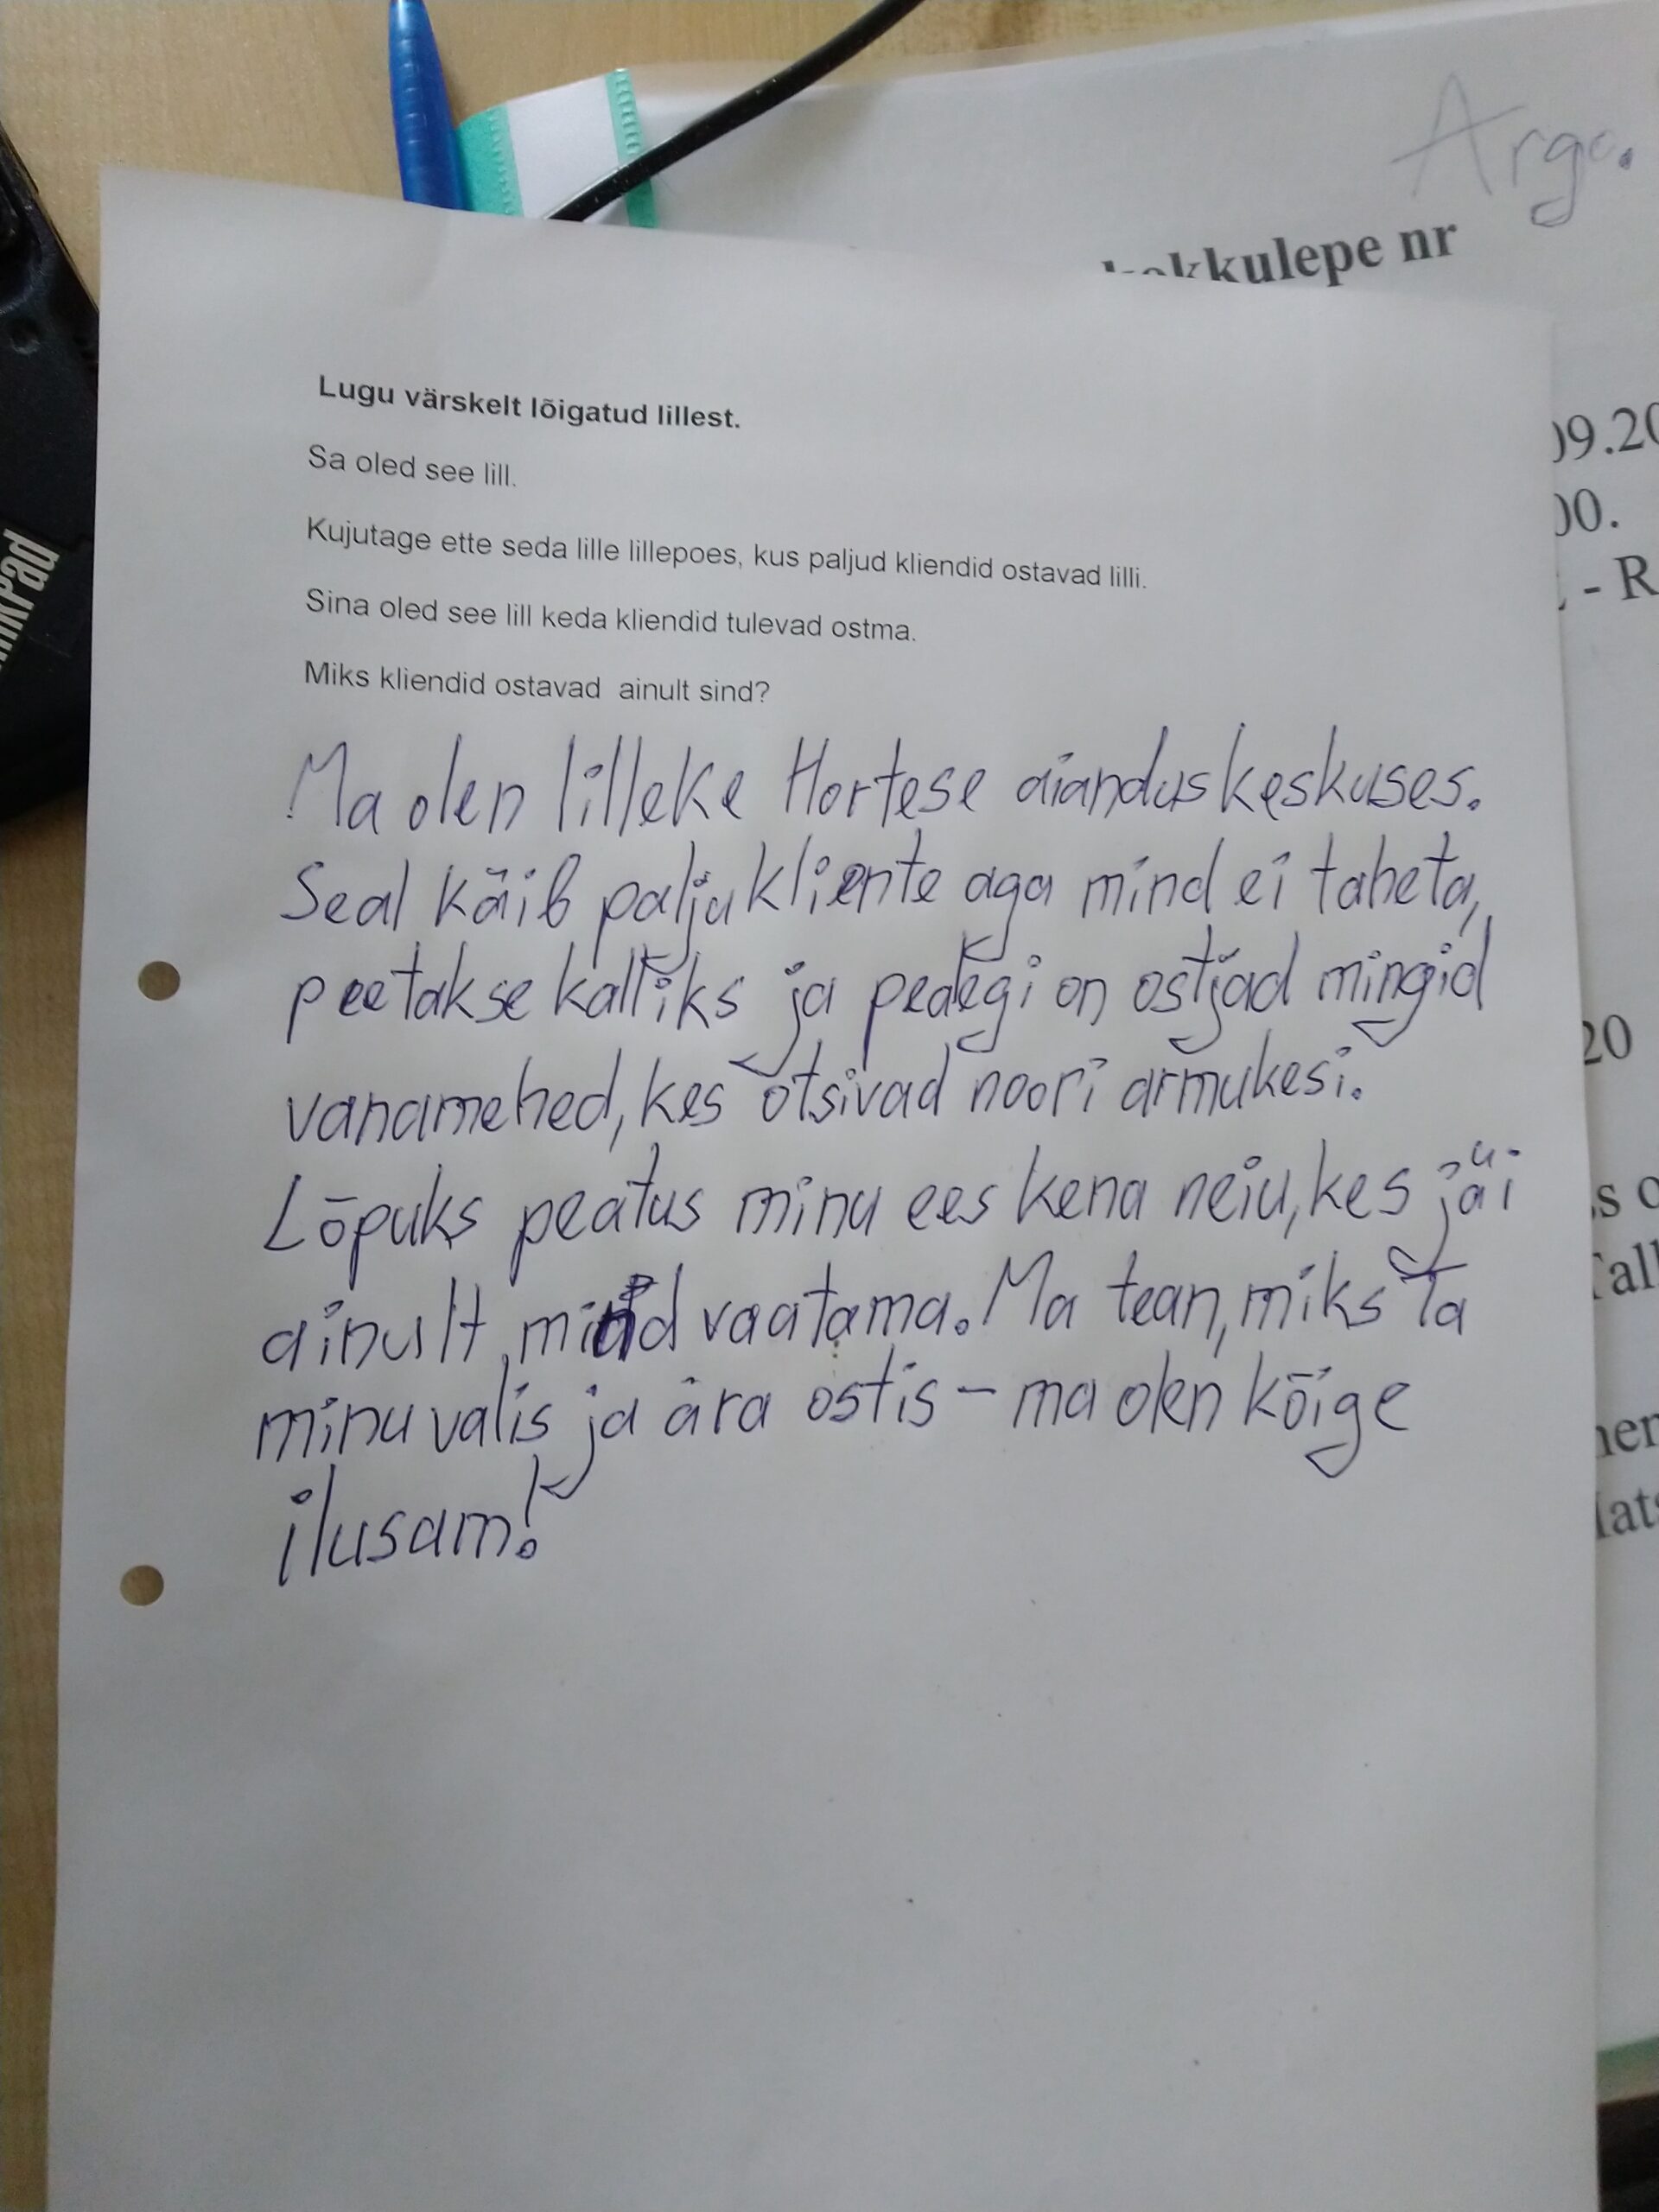 Argo.
kokkulepe nr
09.20
00.
- R
20
Lugu värskelt lõigatud lillest.
Sa oled see lill.
Kujutage ette seda lille lillepoes, kus paljud kliendid ostavad lilli.
Sina oled see lill keda kliendid tulevad ostma.
Miks kliendid ostavad ainult sind?
Ma olen lilleke Hortese aianduskeskuses.
Seal käib palju kliente aga mind ei taheta,
peetakse kalliks ja pealegi on ostjad mingid
vanamehed, kes otsivad noori armukesi.
Lõpuks peatus minu ees kena neiu, kes jäi
ainult mind vaatama. Ma tean, miks ta
minu valis ja ära ostis – ma olen kõige
ilusam!